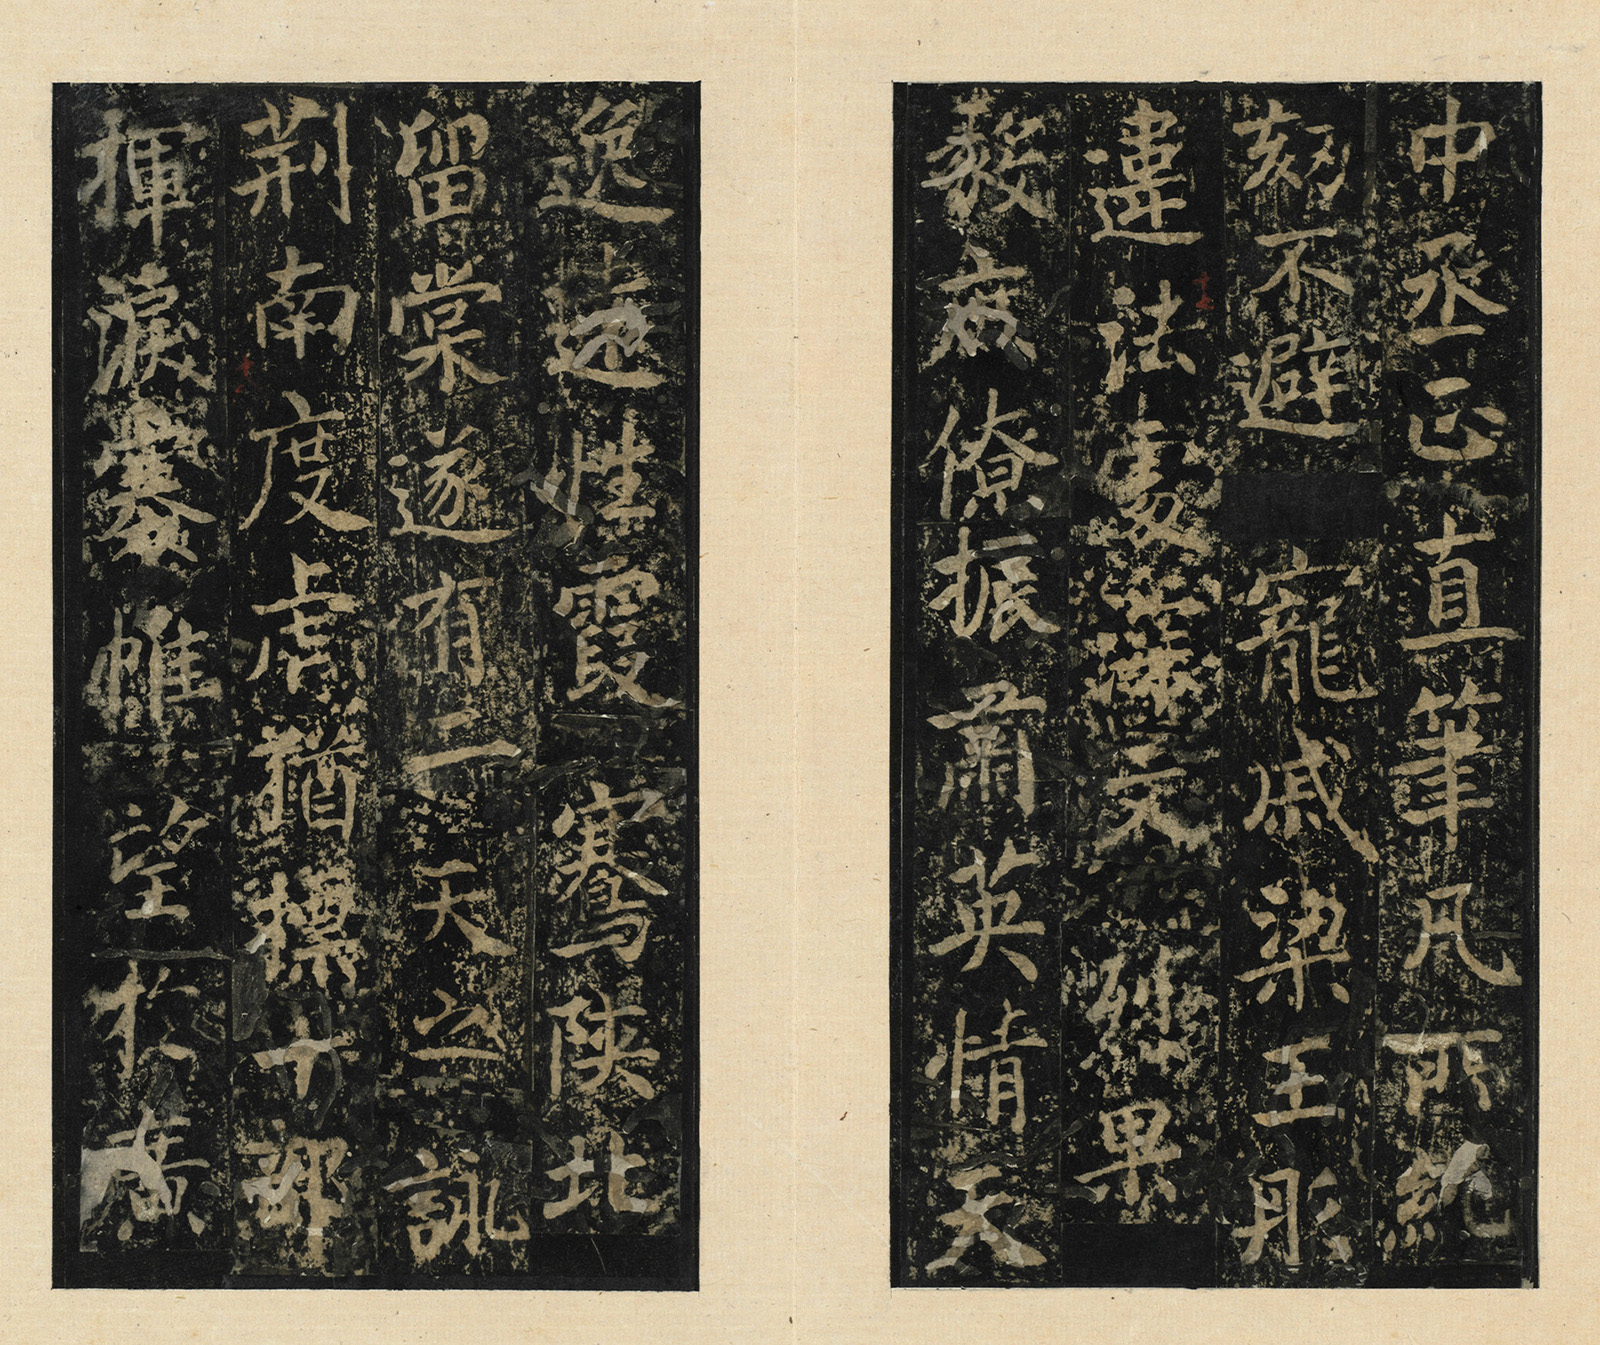 中丞正直筆凡所
劾不避寵戚梁王彤
違法處深文果
毅庶僚振肅英情天
逸遠性霞騫陝北
留棠遂有二天之詠
荊南度虎猶標十部
揮淚褰帷望於廣